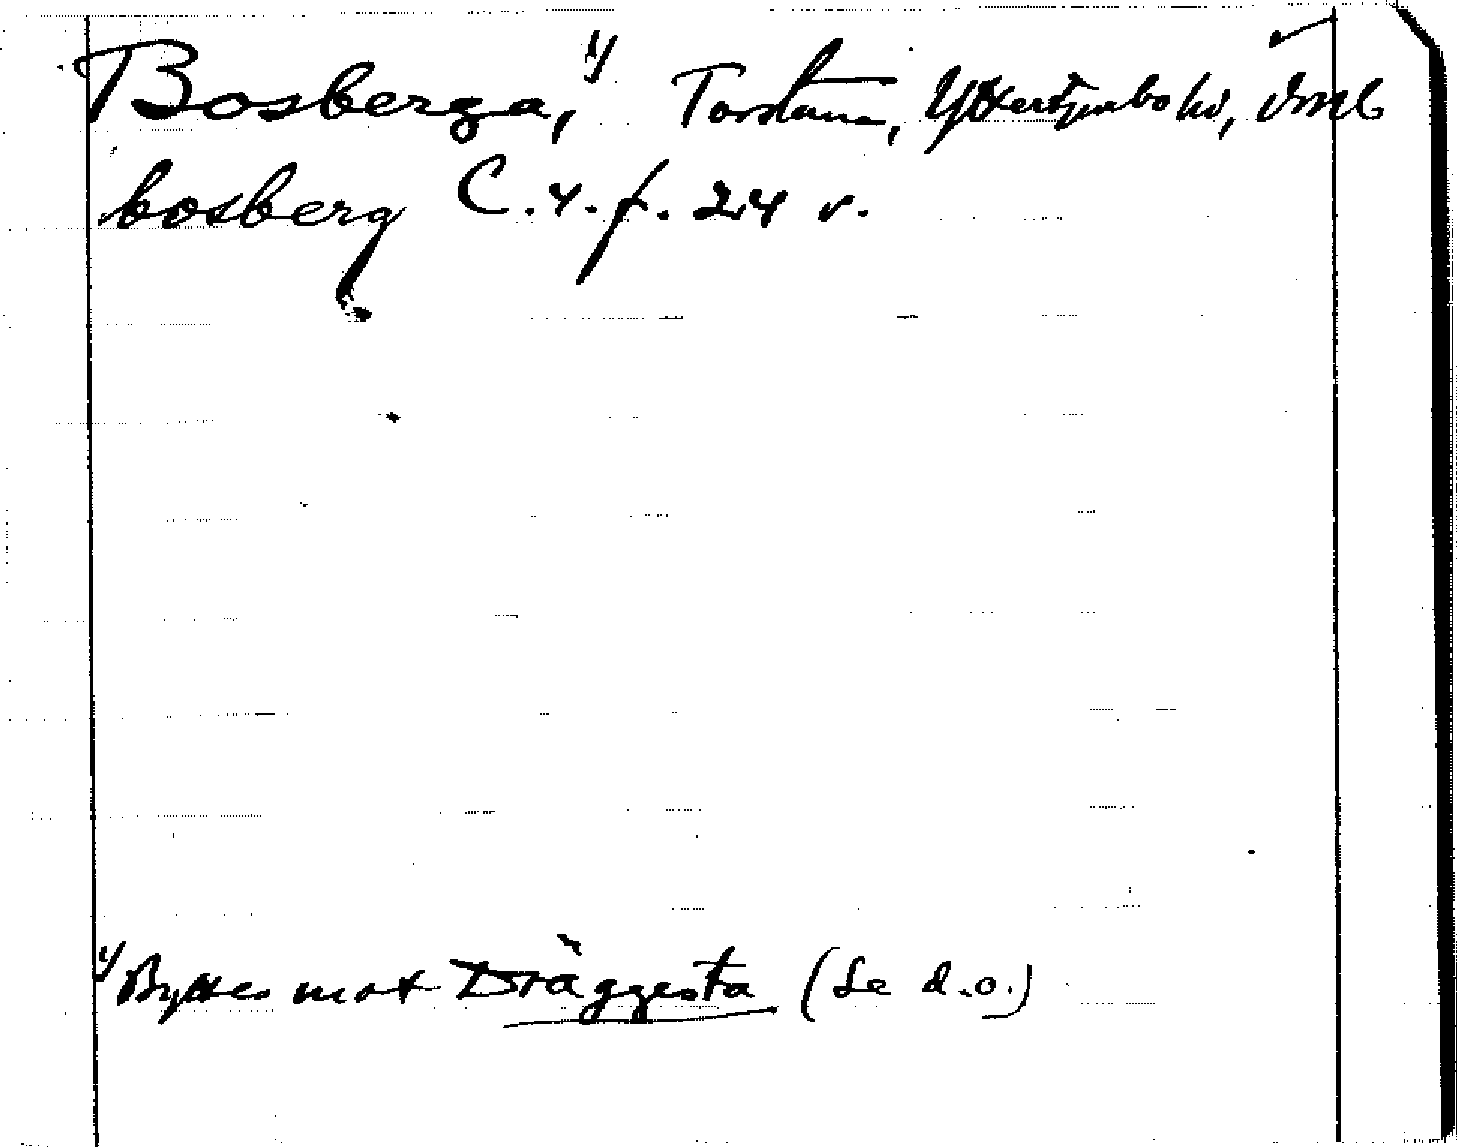 Bosberga, 1) Torstuna, Yttertjurbo hd, Vml
bosberg C. 4. f. 24 v.
1) Byttes mot Dräggesta (Se d.o.)